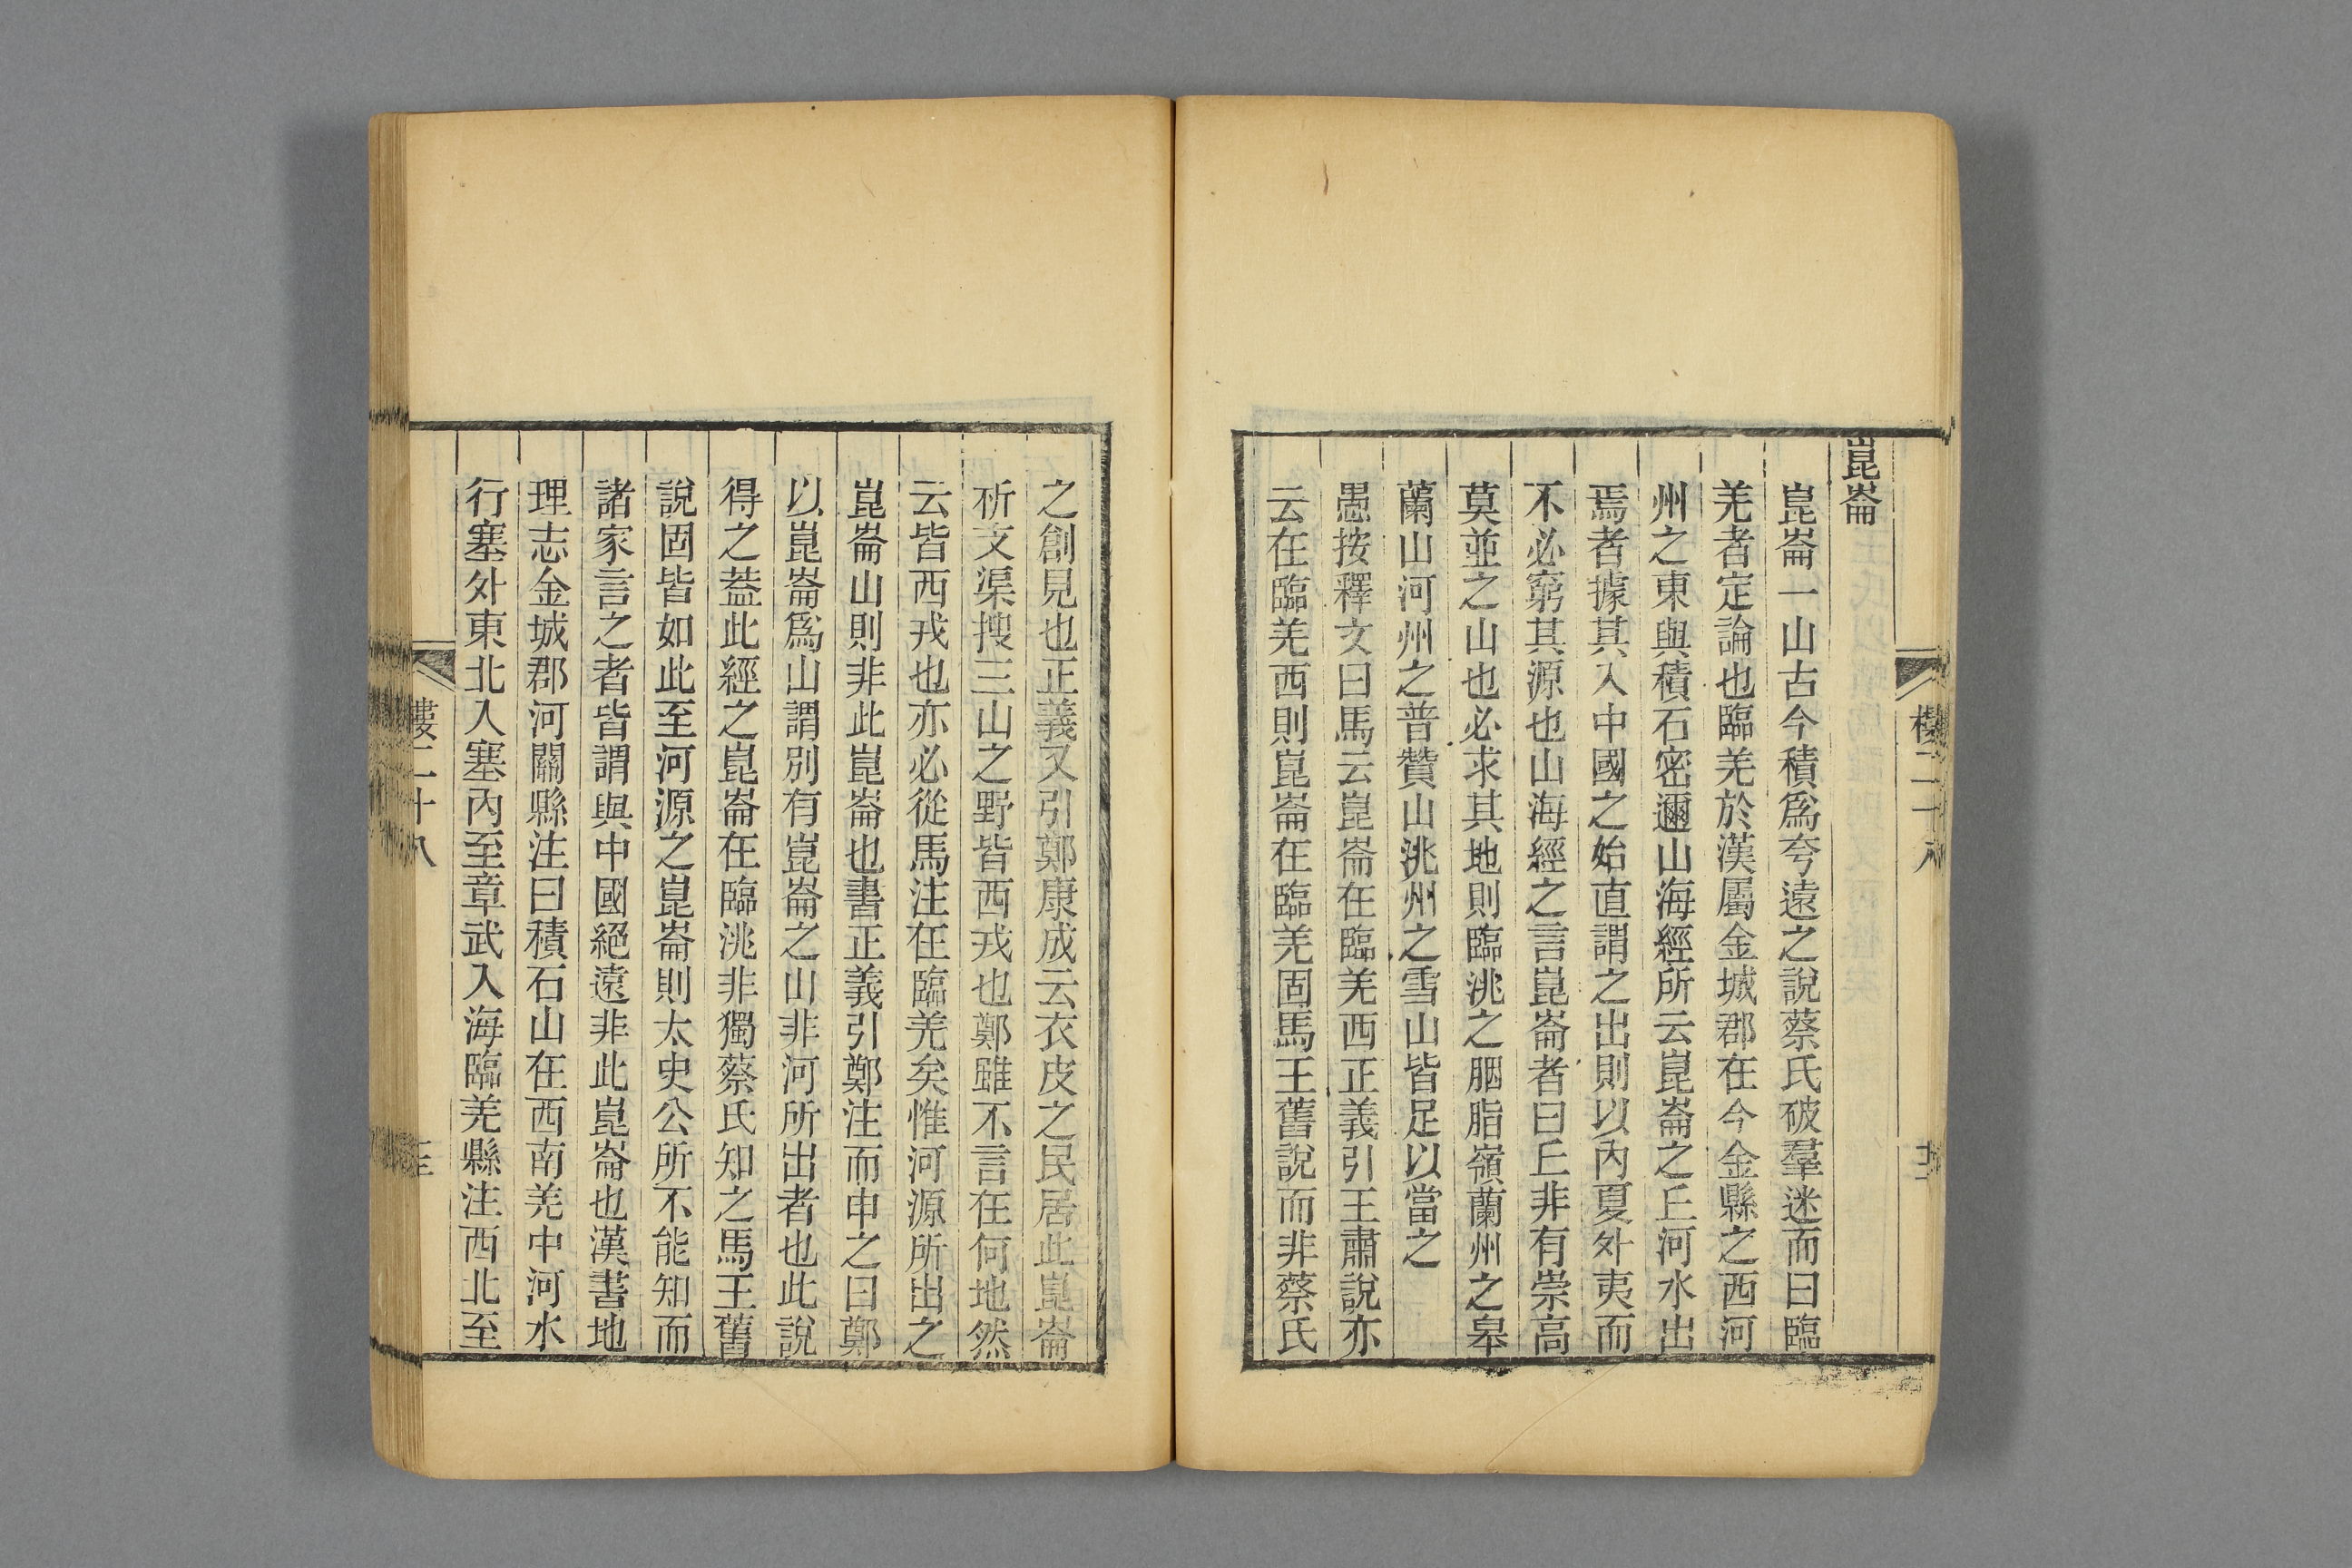 崑崙
崑崙一山古今積爲夸遠之說蔡氏破羣迷而曰臨
羌者定論也臨羌於漢屬金城郡在今金縣之西河
州之東與積石密邇山海經所云崑崙之丘河水出
焉者據其入中國之始直謂之出則以內夏外夷而
不必窮其源也山海經之言崑崙者曰丘非有崇高
莫並之山也必求其地則臨洮之胭脂嶺蘭州之皋
蘭山河州之普贊山洮州之雪山皆足以當之
愚按釋文曰馬云崑崙在臨羌西正義引王肅說亦
云在臨羌西則崑崙在臨羌固馬王舊說而非蔡氏
之創見也正義又引鄭康成云衣皮之民居此崑崙
析支渠搜三山之野皆西戎也鄭雖不言在何地然
云皆西戎也亦必從馬注在臨羌矣惟河源所出之
崑崙山則非此崑崙也書正義引鄭注而申之曰鄭
以崑崙爲山謂別有崑崙之山非河所出者也此說
得之葢此經之崑崙在臨洮非獨蔡氏知之馬王舊
說固皆如此至河源之崑崙則太史公所不能知而
諸家言之者皆謂與中國絕遠非此崑崙也漢書地
理志金城郡河關縣注曰積石山在西南羌中河水
行塞外東北入塞內至章武入海臨羌縣注西北至
樓二十八